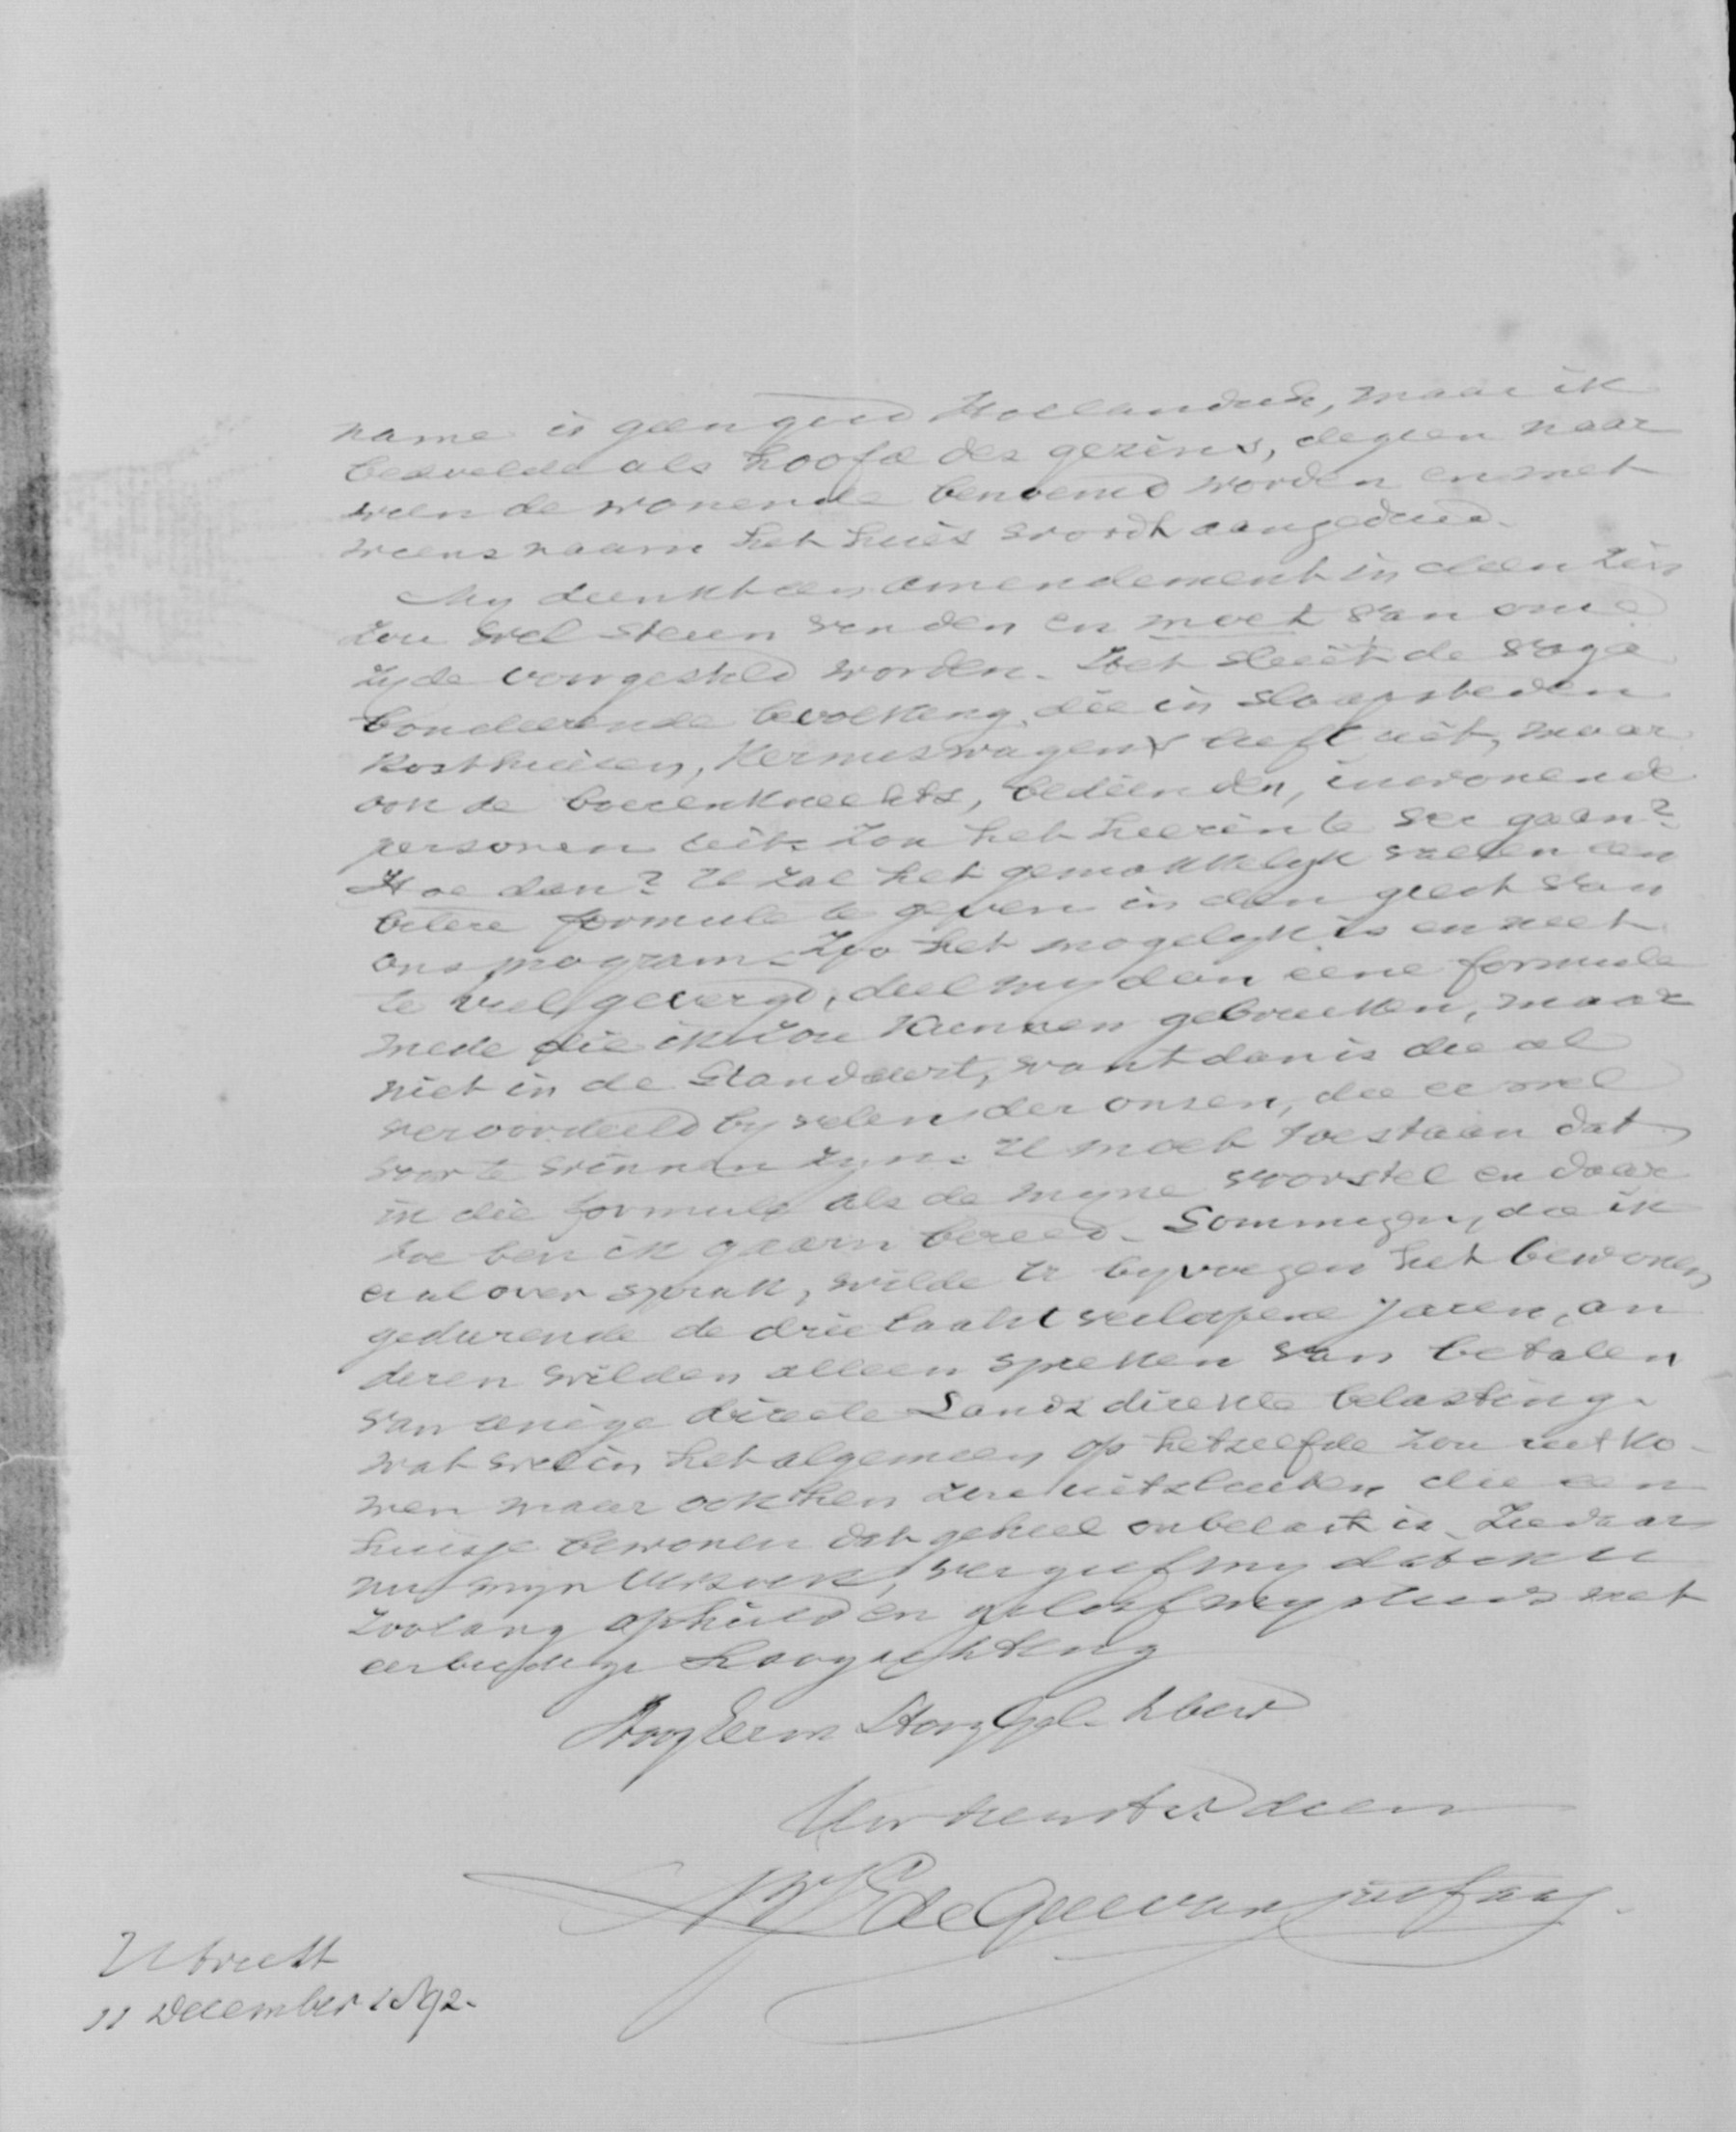 name is geen goed Hollandsch, maar ik
bedoelde als hoofd des gezins, degeen naar
wien de wonende benoemd worden en met
wiens naam het huis wordt aangeduid.
My dunkt een amendement in deen zin
zou wel steun vinden en moet van onze
zyde voorgesteld worden. Het sluit de vaga
bondeerende bevolking, die in slaapsteden
kosthuizen, Kermiswagens leeft uit, maar
ook de boerenknechts, bedienden, inwonende
personen uit. Zou het hierin te ver gaan?
Hoe dan? U zal het gemakkelyk vallen een
betere formule te geven in den geest van
ons program. Zoo het mogelyk is en niet
te veel gevergd, deel my dan eene formule
mede die ik zou kunnen gebruiken, maar
niet in de Standaart, want dan is die al
veroordeeld by velen der onzen, die er wel
voor te winnen zyn. U moet toestaan dat
ik die formule als de myne voorstel en daar
toe ben ik gaarn bereid. Sommigen, die ik
er al over sprak, wilde er byvoegen het bewonen
gedurende de drie laatst verlopene jaren, an
deren wilden alleen spreken van betalen
van eenige directe Lands direkte belasting.
wat wel in het algemeen op hetzelfde zou uitko-
men maar ook hen zou uitsluiten, die een
huisje bewonen dat geheel onbelast is. Ziedaar
nu myn verzoek, vergeef my dat ik U
zoolang ophield en geloof my steeds met
eerbiedige hoogachting
HoogEerw HoogGel. Heer
Uw dienstw dien
de Geer van Jutfaas
Utrecht
11 December 1892.